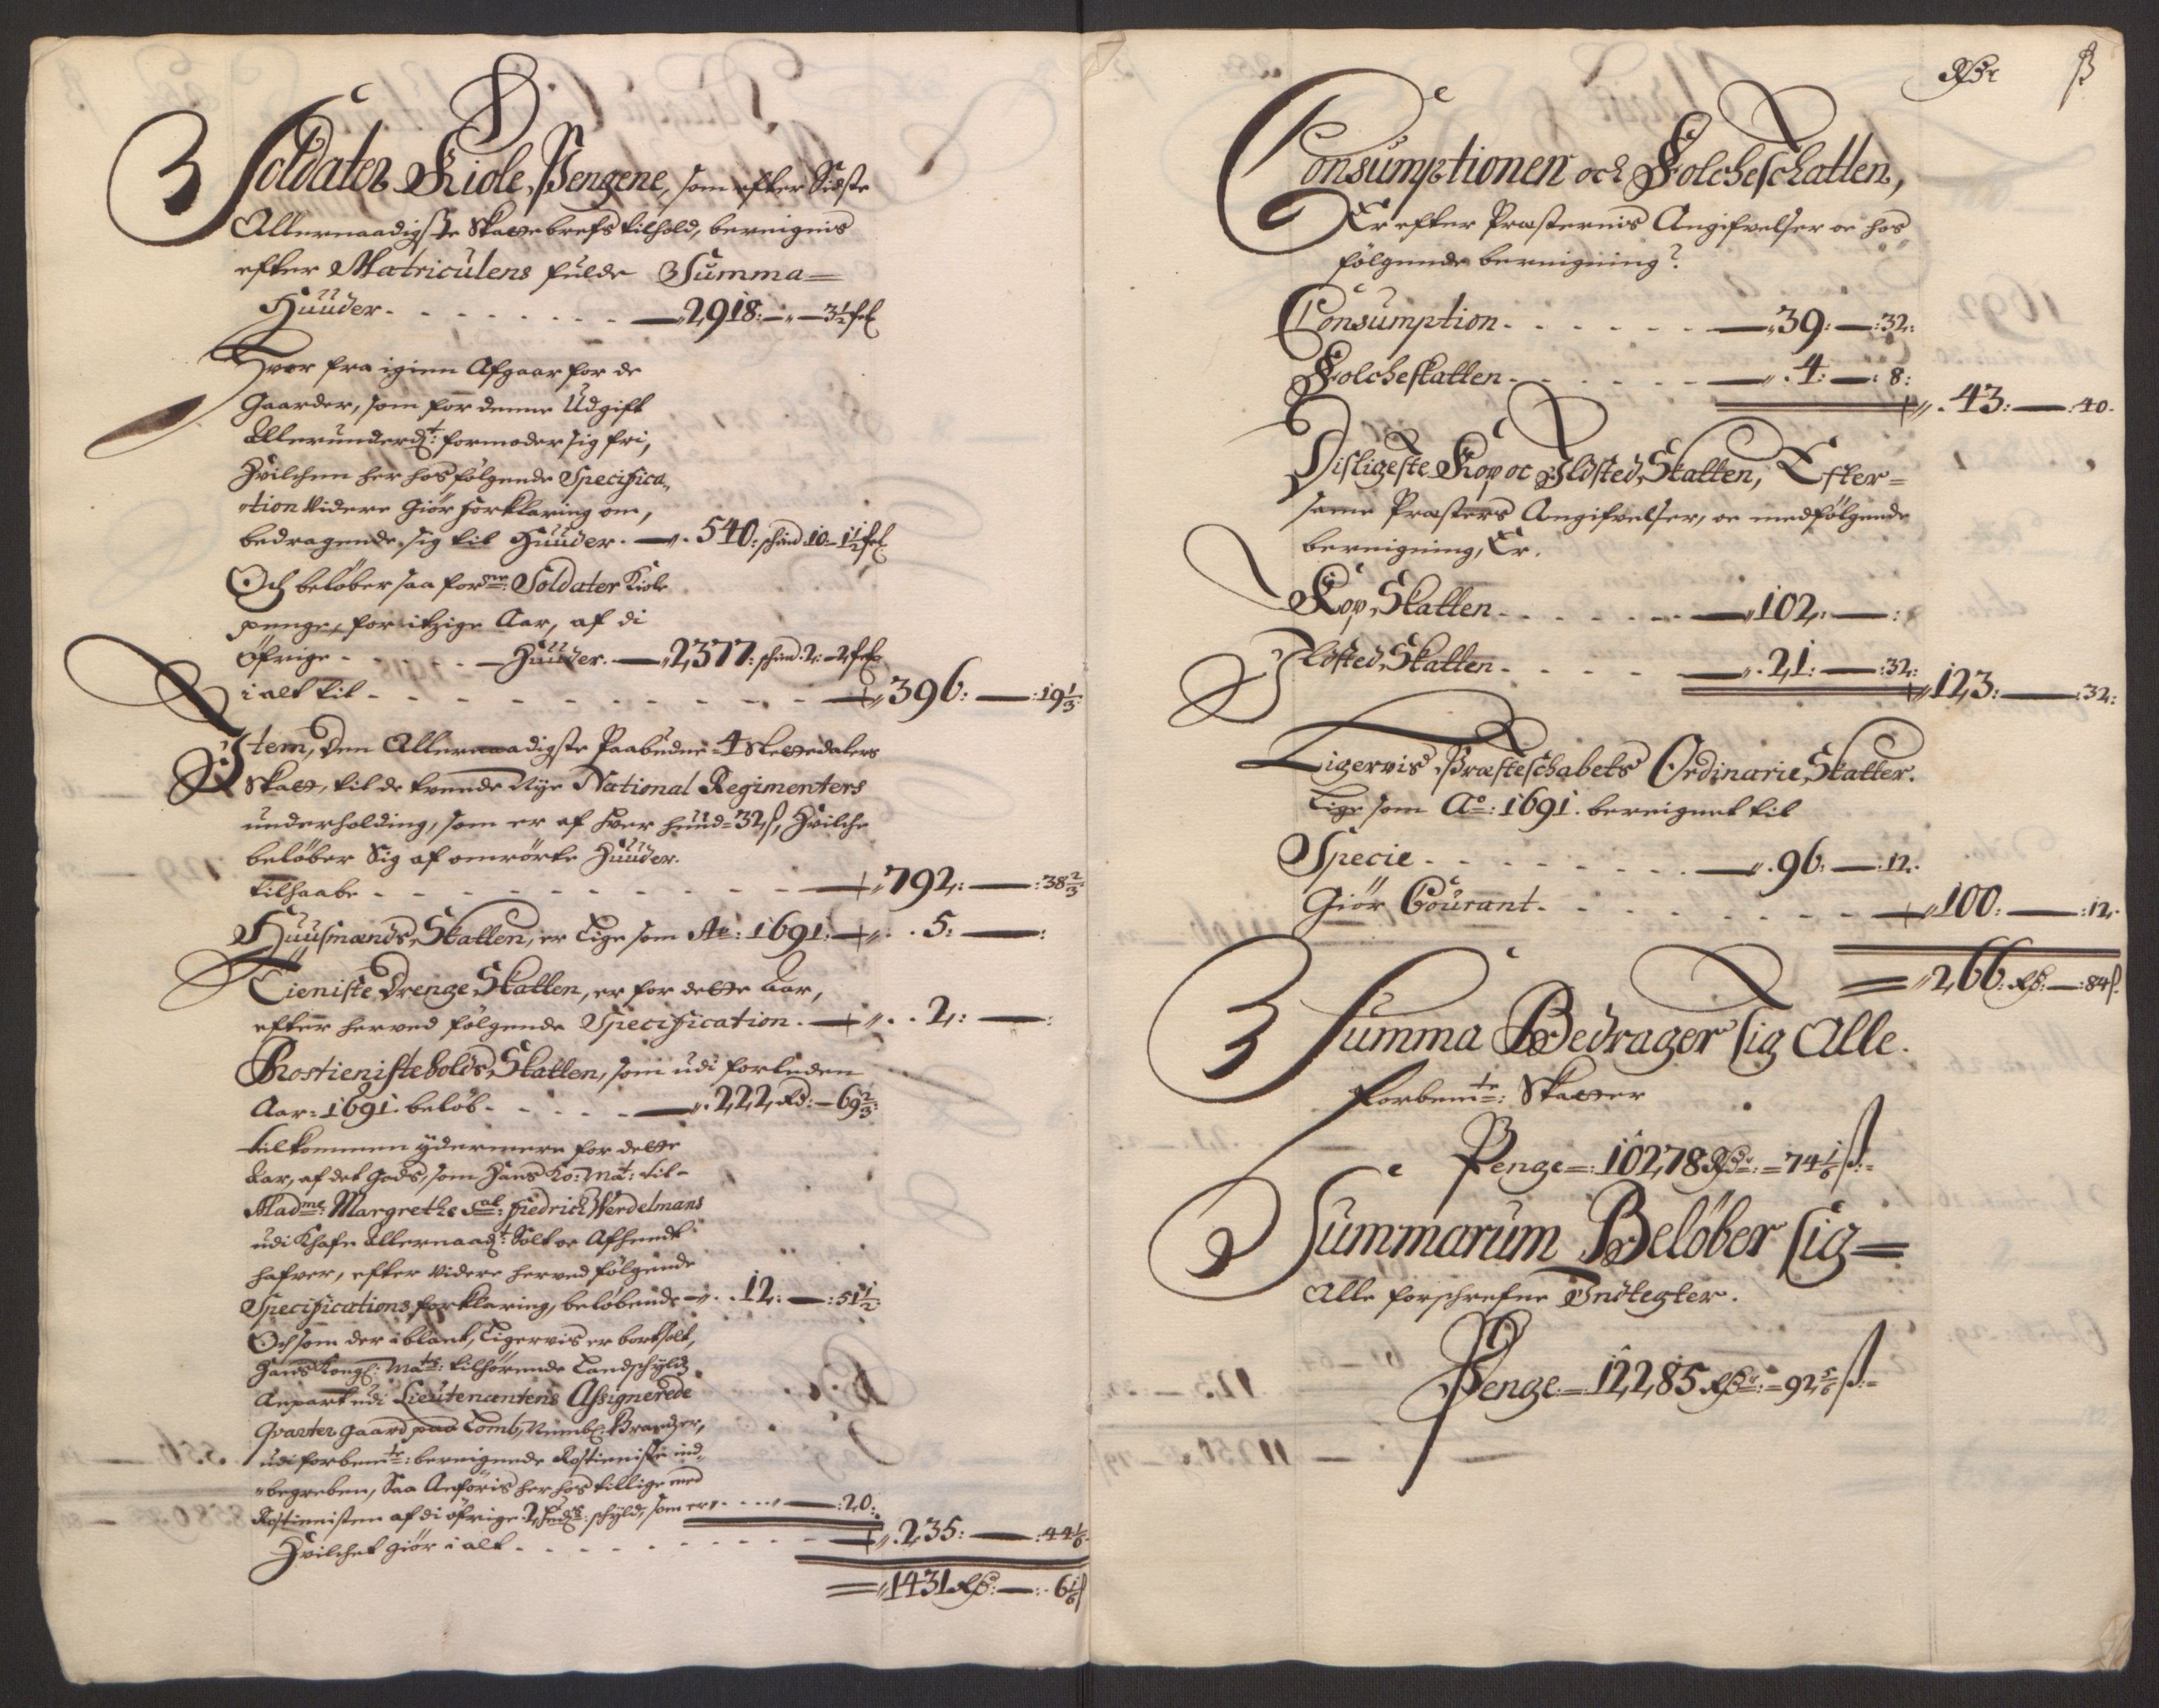 Soldater Kiole Pengene, som efter Sidste
Allernaadigste Skattebrefs tilhold, bereignis
efter Matriculens fulde Summa=
Huuder. - - - - - - - 2918: - „ - 3½ fsk
Hvor fra igien Afgaar for de
Gaarder, som for denne Udgift
Allerunderd:t formoder sig fri,
Hvilchen her hos følgende Specifica-
tion Videre Giør forklaring om,
bedragende sig til Huuder. - „. 540: schind 10 - 1½ fsk
Och beløber saa forne: Soldater Kiole
penge, for itzige Aar, af di
øfrige - - - - Huuder. - „2377: schind. 2: - 2 fsk
i alt til - - - - - - - - - - „396: - :19⅓
Item, den Allernaadigste Paabudne 4 Slettedalers
Skatt, til de tvende Nye National Regimenters
underholding, som er af hver huud=32 s, Hvilche
beløber Sig af omrørte Huuder.
tilhaabe - - - - - - - - - „792: - :38⅔
Huusmænds Skatten, er Lige som Ao: 1691: - „. . 5: - :
Tieniste Drenge Skatten, er for dette Aar,
efter herved følgende Specification. - „. . 2: - :
Rostienisteholds Skatten, som udi forleden
Aar=1691. beløb - - - - - „. 222 Rd: - 69⅔:
tilkommen ydermere for dette
Aar, af det Gods, som Hans Ko: Ma:t til
Madme: Margrethe Sal: Fiedrich Werdelmans
udi Khafn Allernaad:t Solt oc Afhendt
hafver, efter Videre herved følgende
Specifications forklaring, beløbende - „. . 12: - :51½:
Och som der iblant, Ligervis er bortsolt,
Hans Kongl: Ma:ts tilhørende Landschyld
Anpart udi Lieutenantens Assignerede
Qvarter gaard paa Tomb, Numb:
udi forbem:te: bereignede Rostieniste ind-
begreben, Saa Anføris her hos tillige med
Rostienisten af di øfrige 2 schyld, som er - - - - :20:
Hvilchet giør i alt - - - - - - - - „. 235: - :44⅙
= „1431 Rd: - : 6⅙ s
Rdr ß
Consumptionen och Folcheschatten,
Er efter Præsternis Angifvelser oc hos
følgende bereigning:
Consumption - - - - - - - „39: - :32:
Folcheskatten - - - - - - „. 4: - : 8:
„. 43: - :40.
Disligeste Kop oc Ildsted Skatten, Efter=
samme Præsters Angifvelser, oc medfølgende
bereigning, Er.
Kop Skatten - - - - - - - „102: - :
Ildsted Skatten - - - - - „. 21: - :32:
„123: - :32:
Ligervis Præsteschabets Ordinarie Skatter.
Lige som Ao: 1691. bereignet til
Specie - - - - - - - - „. 96: - :12.
Giør Courant. - - - - - - - „100: - :12.
= „266: Rd: - :84 s.
Summa Bedrager sig Alle
forbemte: Skatter
Penge=: 10278 Rdr: = 74⅙ s:=
Summarum Beløber sig=
Alle forschrefne Indtegter.
Penge=: 12285 Rdr: = 92⅚ s:=